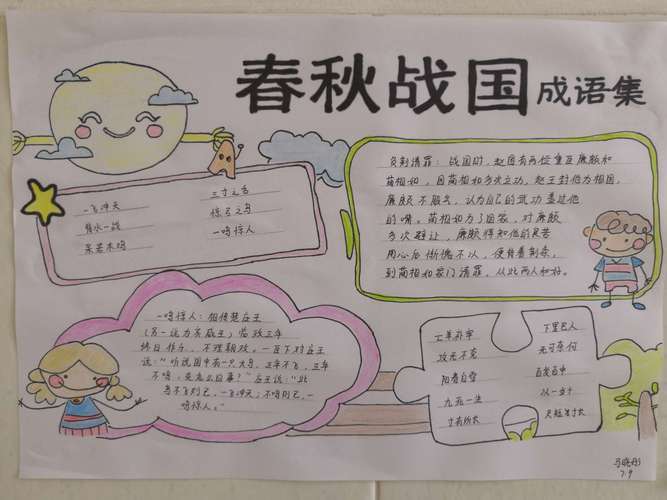 春秋战国成语集
一飞冲天
三寸之舌
背水一战
惊弓之鸟
呆若木鸡
一鸣惊人
负荆请罪：战国时，赵国有两位重臣廉颇和
蔺相如，因蔺相如多次立功，赵王封他为相国，
廉颇不服气，认为自己的武功盖过他
的嘴。蔺相如为了国家，对廉颇
多次避让，廉颇得知他的良苦
用心后惭愧不以，便背着荆条，
到蔺相如家门请罪，从此两人和好。
一鸣惊人：相传楚庄王
（另一说为齐威王）临政三年
终日作乐，不理朝政。一臣下对庄王
说："听说国中有一只大鸟，三年不飞，三年
不鸣，
庄王说："此
鸟不飞则已，一飞冲天；不鸣则已，一
鸣惊人。"
亡羊补牢
下里巴人
攻无不克
无可奈何
阳春白雪
百发百中
九死一生
以一当十
寸有所长
尺短寸长
7.9